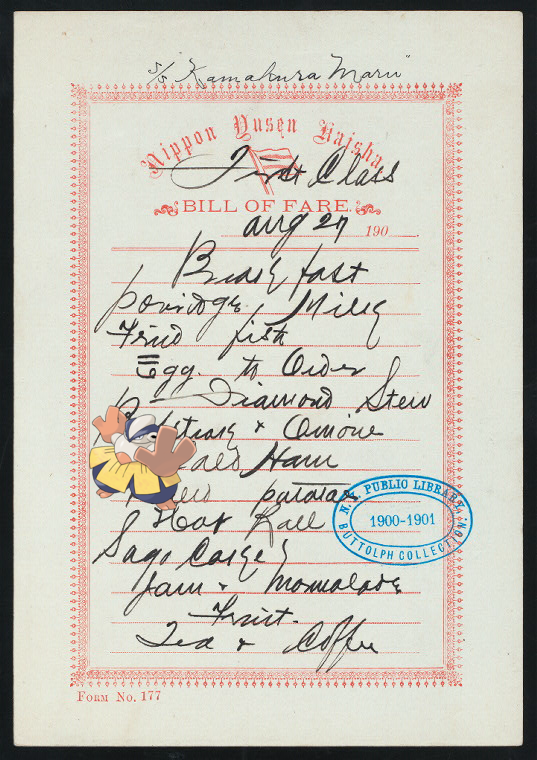 S/S "Kamakura Maru"
Nippon Yusen Kaisha
First Class
BILL OF FARE.
Aug 27 190
Breakfast
porridge Milk
Fried fish
Egg. to Order
Diamond Stew
& Onione
Ham
potatoes
Hot Roll
Sago
Jam & Mormalade
Fruit.
Tea & Coffee
N.Y. PUBLIC LIBRARY
1900-1901
BUTTOLPH COLLECTION
FORM NO. 177